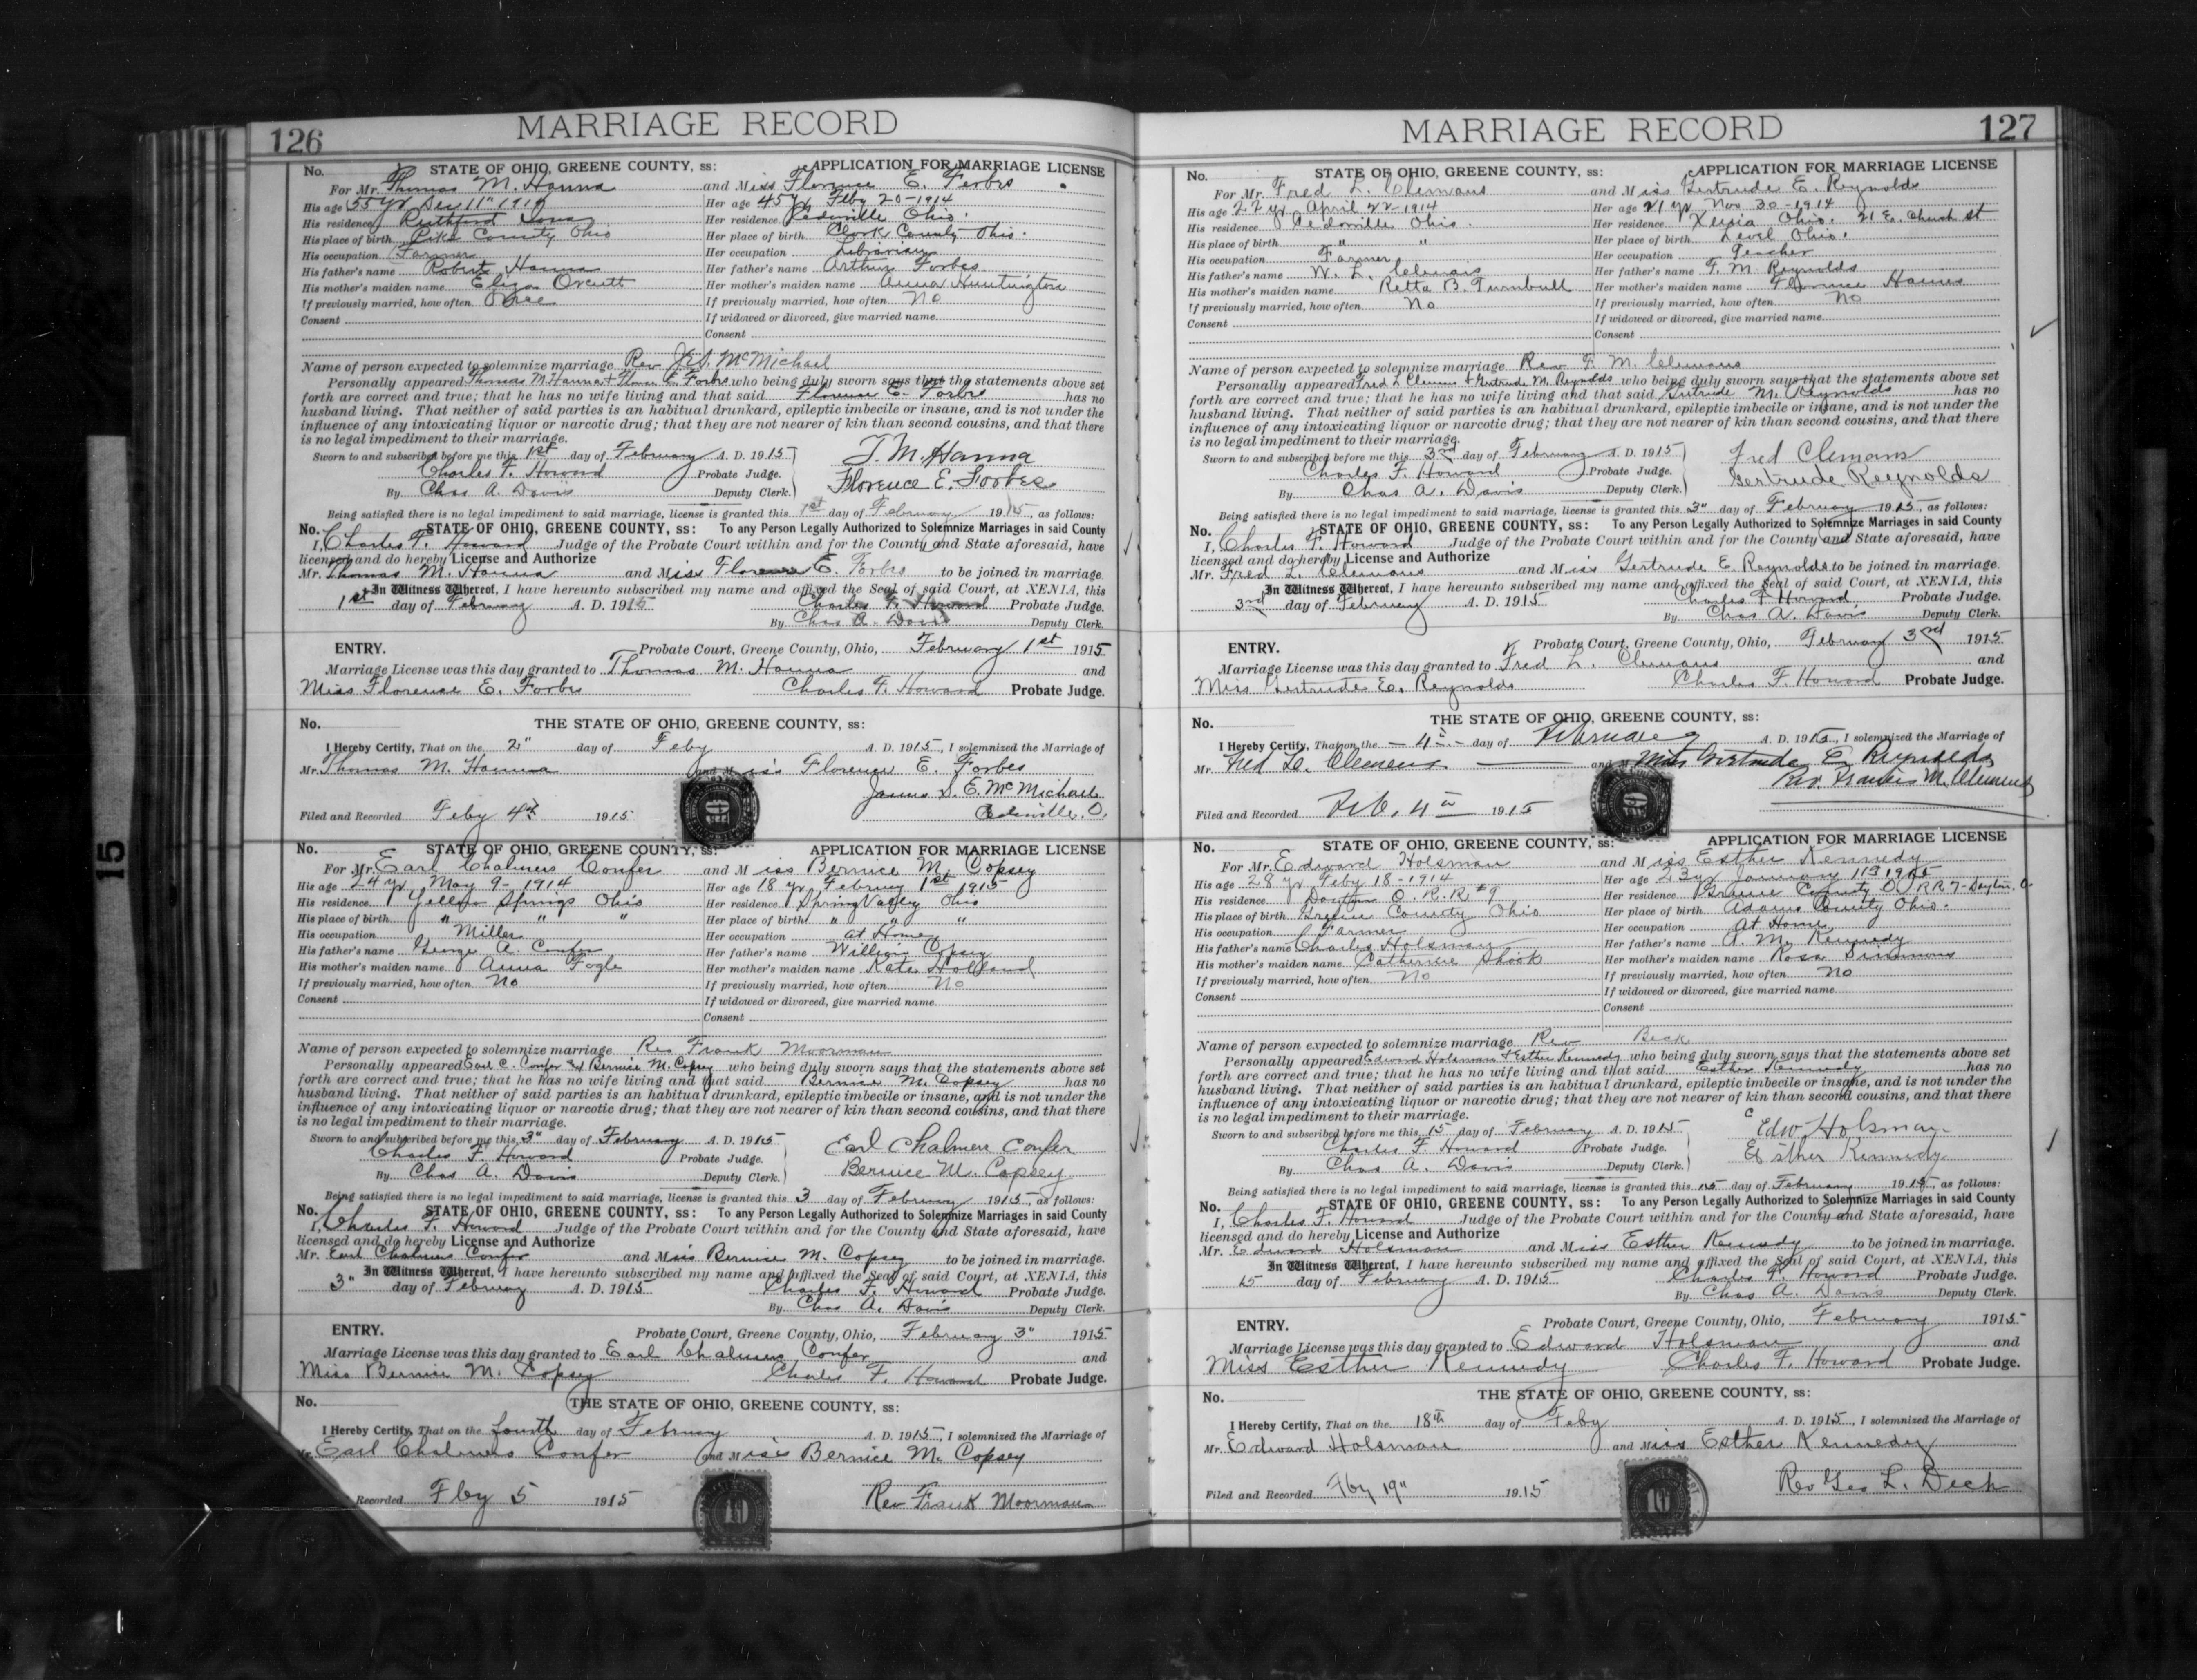 126
MARRIAGE RECORD
No. STATE OF OHIO, GREENE COUNTY, ss: APPLICATION FOR MARRIAGE LICENSE
For Mr. Thomas M. Hanna and Miss Florence E. Forbes
His age 55 yr Dec 11" 1914 Her age 45 yr Feby 20-1914
His residence Ruthford Iowa Her residence Cedarville Ohio.
His place of birth Pike County Ohio Her place of birth Clark County Ohio.
His occupation Farmer Her occupation Librarian
His father's name Robert Hanna Her father's name Arthur Forbes
His mother's maiden name Eliza Orcutt Her mother's maiden name Anna Huntington
If previously married, how often Once If previously married, how often No
Consent If widowed or divorced, give married name
Consent
Name of person expected to solemnize marriage Rev J.E.S. McMichael
Personally appeared Thomas M Hanna + Florence E. Forbes who being duly sworn says that the statements above set
forth are correct and true; that he has no wife living and that said Florence E. Forbes has no
husband living. That neither of said parties is an habitual drunkard, epileptic imbecile or insane, and is not under the
influence of any intoxicating liquor or narcotic drug; that they are not nearer of kin than second cousins, and that there
is no legal impediment to their marriage.
Sworn to and subscribed before me this 1st day of February A. D. 1915 T. M. Hanna
Charles F. Howard Probate Judge.
By Chas A. Davis Deputy Clerk. Florence E. Forbes
Being satisfied there is no legal impediment to said marriage, license is granted this 1st day of February 1915, as follows:
No. STATE OF OHIO, GREENE COUNTY, ss: To any Person Legally Authorized to Solemnize Marriages in said County
I, Charles F. Howard Judge of the Probate Court within and for the County and State aforesaid, have
licensed and do hereby License and Authorize
Mr. Thomas M. Hanna and Miss Florence E. Forbes to be joined in marriage.
In Witness Whereof, I have hereunto subscribed my name and affixed the Seal of said Court, at XENIA, this
1st day of February A. D. 1915 Charles F. Howard Probate Judge.
By Chas A. Davis Deputy Clerk.
ENTRY. Probate Court, Greene County, Ohio, February 1st 1915
Marriage License was this day granted to Thomas M. Hanna and
Miss Florence E. Forbes Charles F. Howard Probate Judge.
No. THE STATE OF OHIO, GREENE COUNTY, ss:
I Hereby Certify, That on the 2" day of Feby A. D. 1915, I solemnized the Marriage of
Mr Thomas M. Hanna and Miss Florence E. Forbes
James E. McMichael
Filed and Recorded Feby 4th 1915 Cedarville, O.
No. STATE OF OHIO, GREENE COUNTY, ss: APPLICATION FOR MARRIAGE LICENSE
For Mr. Earl Chalmers Confer and Miss Bernice M. Copsey
His age 24 yr May 9- 1914 Her age 18 yr February 1st 1915
His residence Yellow Springs Ohio Her residence Spring Valley Ohio
His place of birth " " " Her place of birth " " "
His occupation Miller Her occupation At Home
His father's name George A. Confer Her father's name William Copsey
His mother's maiden name Anna Fogle Her mother's maiden name Kate Holland
If previously married, how often No If previously married, how often No
Consent If widowed or divorced, give married name
Consent
Name of person expected to solemnize marriage Rev Frank Moorman
Personally appeared Earl C. Confer and Bernice M. Copsey who being duly sworn says that the statements above set
forth are correct and true; that he has no wife living and that said Bernice M. Copsey has no
husband living. That neither of said parties is an habitual drunkard, epileptic imbecile or insane, and is not under the
influence of any intoxicating liquor or narcotic drug; that they are not nearer of kin than second cousins, and that there
is no legal impediment to their marriage.
Sworn to and subscribed before me this 3" day of February A. D. 1915 Earl Chalmers Confer
Charles F. Howard Probate Judge.
By Chas A. Davis Deputy Clerk. Bernice M. Copsey
Being satisfied there is no legal impediment to said marriage, license is granted this 3 day of February 1915, as follows:
No. STATE OF OHIO, GREENE COUNTY, ss: To any Person Legally Authorized to Solemnize Marriages in said County
I, Charles F. Howard Judge of the Probate Court within and for the County and State aforesaid, have
licensed and do hereby License and Authorize
Mr. Earl Chalmers Confer and Miss Bernice M. Copsey to be joined in marriage.
In Witness Whereof, I have hereunto subscribed my name and affixed the Seal of said Court, at XENIA, this
3" day of February A. D. 1915 Charles F. Howard Probate Judge.
By Chas A. Davis Deputy Clerk.
ENTRY. Probate Court, Greene County, Ohio, February 3" 1915
Marriage License was this day granted to Earl Chalmers Confer and
Miss Bernice M. Copsey Charles F. Howard Probate Judge.
No. THE STATE OF OHIO, GREENE COUNTY, ss:
I Hereby Certify, That on the fourth day of February A. D. 1915, I solemnized the Marriage of
Earl Chalmers Confer and Miss Bernice M. Copsey
Recorded Feby 5 1915 Rev Frank Moorman
127
MARRIAGE RECORD
No. STATE OF OHIO, GREENE COUNTY, ss: APPLICATION FOR MARRIAGE LICENSE
For Mr. Fred L. Clemans and Miss Gertrude E. Reynolds
His age 22 yr April 22-1914 Her age 21 yr Nov 30-1914
His residence Cedarville Ohio. Her residence Xenia Ohio. 21 E. Church St
His place of birth " " Her place of birth Level Ohio.
His occupation Farmer Her occupation Teacher
His father's name W. L. Clemans Her father's name F. M. Reynolds
His mother's maiden name Retta B. Turnbull Her mother's maiden name Florence Haines
If previously married, how often No If previously married, how often No
Consent If widowed or divorced, give married name
Consent
Name of person expected to solemnize marriage Rev F. M. Clemans
Personally appeared Fred L Clemans + Gertrude M. Reynolds who being duly sworn says that the statements above set
forth are correct and true; that he has no wife living and that said Gertrude M. Reynolds has no
husband living. That neither of said parties is an habitual drunkard, epileptic imbecile or insane, and is not under the
influence of any intoxicating liquor or narcotic drug; that they are not nearer of kin than second cousins, and that there
is no legal impediment to their marriage.
Sworn to and subscribed before me this 3rd day of February A. D. 1915 Fred Clemans
Charles F. Howard Probate Judge.
By Chas A. Davis Deputy Clerk. Gertrude Reynolds
Being satisfied there is no legal impediment to said marriage, license is granted this 3" day of February 1915, as follows:
No. STATE OF OHIO, GREENE COUNTY, ss: To any Person Legally Authorized to Solemnize Marriages in said County
I, Charles F. Howard Judge of the Probate Court within and for the County and State aforesaid, have
licensed and do hereby License and Authorize
Mr. Fred L. Clemans and Miss Gertrude E. Reynolds to be joined in marriage.
In Witness Whereof, I have hereunto subscribed my name and affixed the Seal of said Court, at XENIA, this
3rd day of February A. D. 1915 Charles F. Howard Probate Judge.
By Chas A. Davis Deputy Clerk.
ENTRY. Probate Court, Greene County, Ohio, February 3rd 1915
Marriage License was this day granted to Fred L. Clemans and
Miss Gertrude E. Reynolds Charles F. Howard Probate Judge.
No. THE STATE OF OHIO, GREENE COUNTY, ss:
I Hereby Certify, That on the 4th day of February A. D. 1915, I solemnized the Marriage of
Mr Fred L. Clemens and Miss Gertrude E Reynolds
Rev. Francis M. Clemens
Filed and Recorded Feb. 4th 1915
No. STATE OF OHIO, GREENE COUNTY, ss: APPLICATION FOR MARRIAGE LICENSE
For Mr. Edward Holsman and Miss Esther Kennedy
His age 28 yr Feby 18-1914 Her age 23 yr January 11th 1915
His residence Dayton O. R.R #9 Her residence Greene County O. RR 7-Dayton, O.
His place of birth Greene County Ohio Her place of birth Adams County Ohio.
His occupation Farmer Her occupation At Home
His father's name Charles Holsman Her father's name A. M. Kennedy
His mother's maiden name Catherine Shook Her mother's maiden name Rosa Simmons
If previously married, how often No If previously married, how often No
Consent If widowed or divorced, give married name
Consent
Name of person expected to solemnize marriage Rev Beck
Personally appeared Edward Holsman + Esther Kennedy who being duly sworn says that the statements above set
forth are correct and true; that he has no wife living and that said Esther Kennedy has no
husband living. That neither of said parties is an habitual drunkard, epileptic imbecile or insane, and is not under the
influence of any intoxicating liquor or narcotic drug; that they are not nearer of kin than second cousins, and that there
is no legal impediment to their marriage.
Sworn to and subscribed before me this 15 day of February A. D. 1915 Edw Holsman
Charles F. Howard Probate Judge.
By Chas A. Davis Deputy Clerk. Esther Kennedy
Being satisfied there is no legal impediment to said marriage, license is granted this 15 day of February 1915, as follows:
No. STATE OF OHIO, GREENE COUNTY, ss: To any Person Legally Authorized to Solemnize Marriages in said County
I, Charles F. Howard Judge of the Probate Court within and for the County and State aforesaid, have
licensed and do hereby License and Authorize
Mr. Edward Holsman and Miss Esther Kennedy to be joined in marriage.
In Witness Whereof, I have hereunto subscribed my name and affixed the Seal of said Court, at XENIA, this
15 day of February A. D. 1915 Charles F. Howard Probate Judge.
By Chas A. Davis Deputy Clerk.
ENTRY. Probate Court, Greene County, Ohio, February 1915
Marriage License was this day granted to Edward Holsman and
Miss Esther Kennedy Charles F. Howard Probate Judge.
No. THE STATE OF OHIO, GREENE COUNTY, ss:
I Hereby Certify, That on the 18th day of Feby A. D. 1915, I solemnized the Marriage of
Mr. Edward Holsman and Miss Esther Kennedy
Filed and Recorded Feby 19" 1915 Rev Geo L. Dech
15